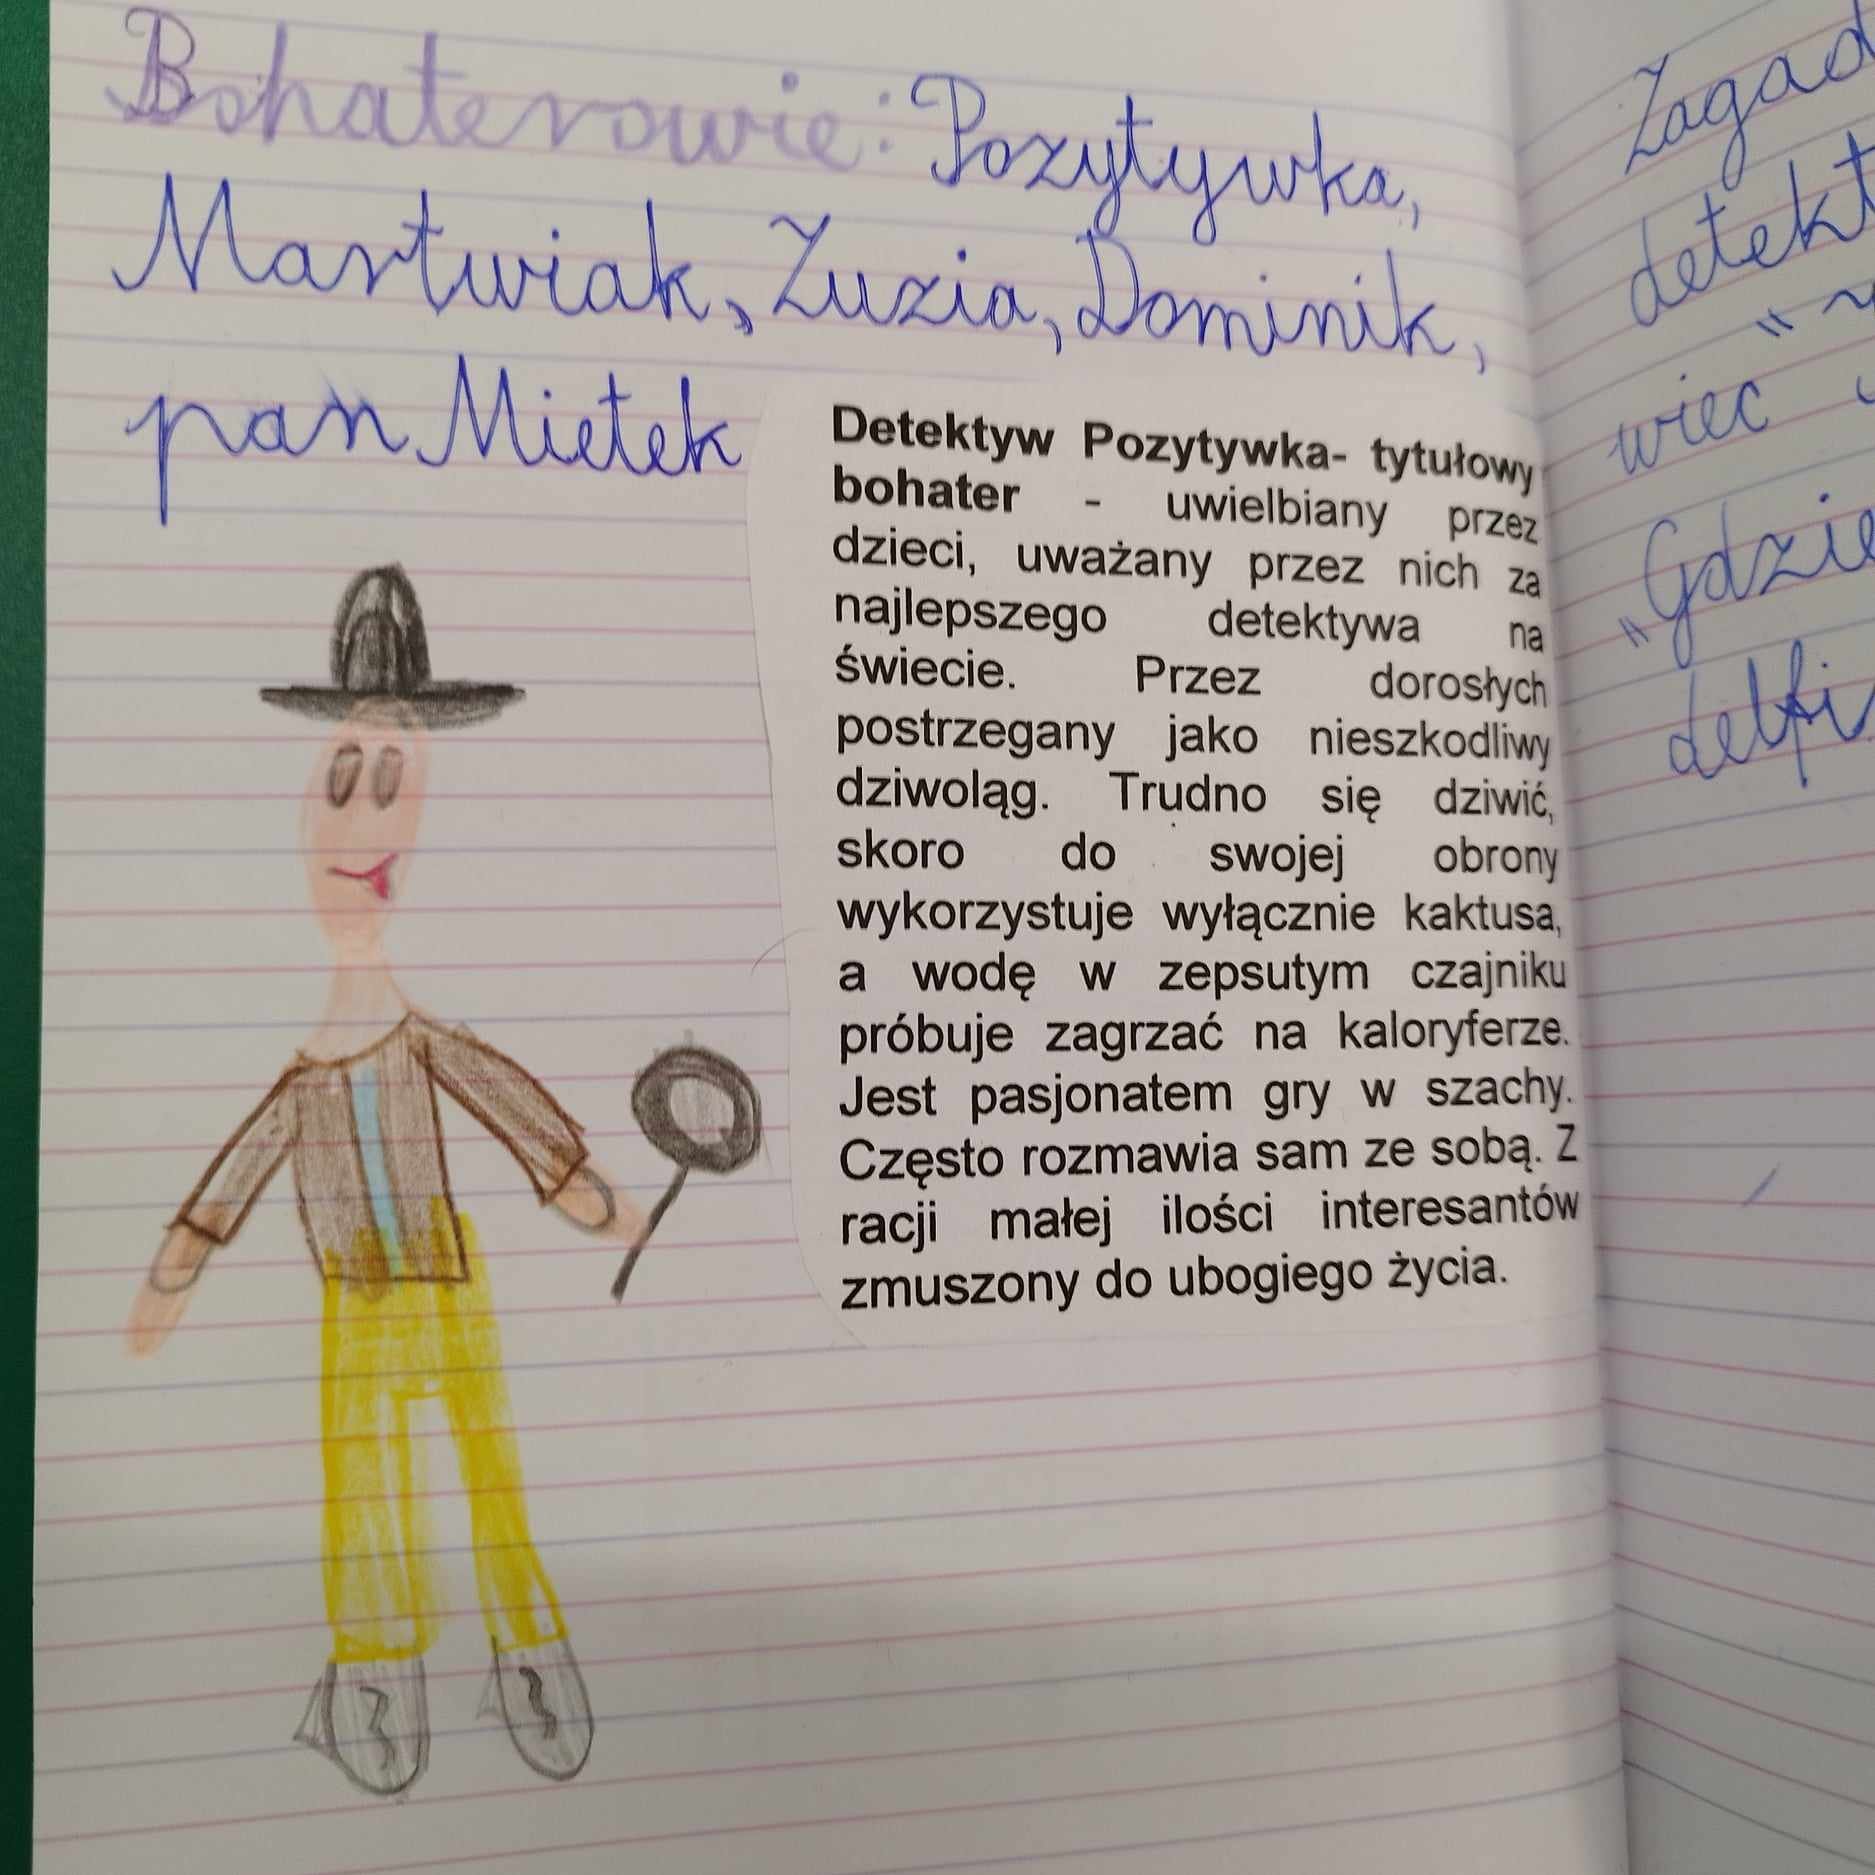 Bohaterowie: Pozytywka,
Martwiak, Zuzia, Dominik,
pan Mietek
Detektyw Pozytywka- tytułowy
bohater - uwielbiany przez
dzieci, uważany przez nich za
najlepszego detektywa na
świecie. Przez dorosłych
postrzegany jako nieszkodliwy
dziwoląg. Trudno się dziwić,
skoro do swojej obrony
wykorzystuje wyłącznie kaktusa,
a wodę w zepsutym czajniku
próbuje zagrzać na kaloryferze.
Jest pasjonatem gry w szachy.
Często rozmawia sam ze sobą. Z
racji małej ilości interesantów
zmuszony do ubogiego życia.
Zagad
detekt
wiec
„Gdzie
delfi